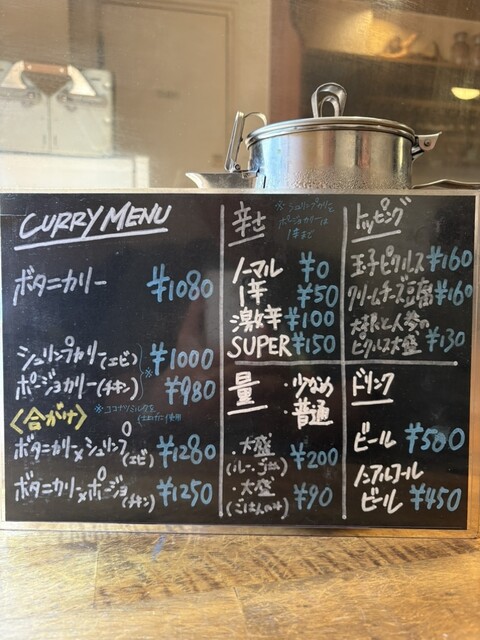 CURRY MENU
ボタニカリー ¥1080
シュリンプカリー(エビ) ¥1000
ポージョカリー(チキン) ¥980
※ココナツミルクを
仕上げに使用
〈合がけ〉
ボタニカリー×シュリンプ(エビ) ¥1280
ボタニカリー×ポージョ(チキン) ¥1250
辛さ
※シュリンプカリーと
ポージョカリーは
1辛まで
ノーマル ¥0
1辛 ¥50
激辛 ¥100
SUPER ¥150
量
・少なめ
・普通
・大盛 ¥200
(ルー、ごはん)
・大盛 ¥90
(ごはんのみ)
トッピング
玉子ピクルス ¥160
クリームチーズ豆腐 ¥160
大根と人参の
ピクルス大盛 ¥130
ドリンク
ビール ¥500
ノンアルコール
ビール ¥450